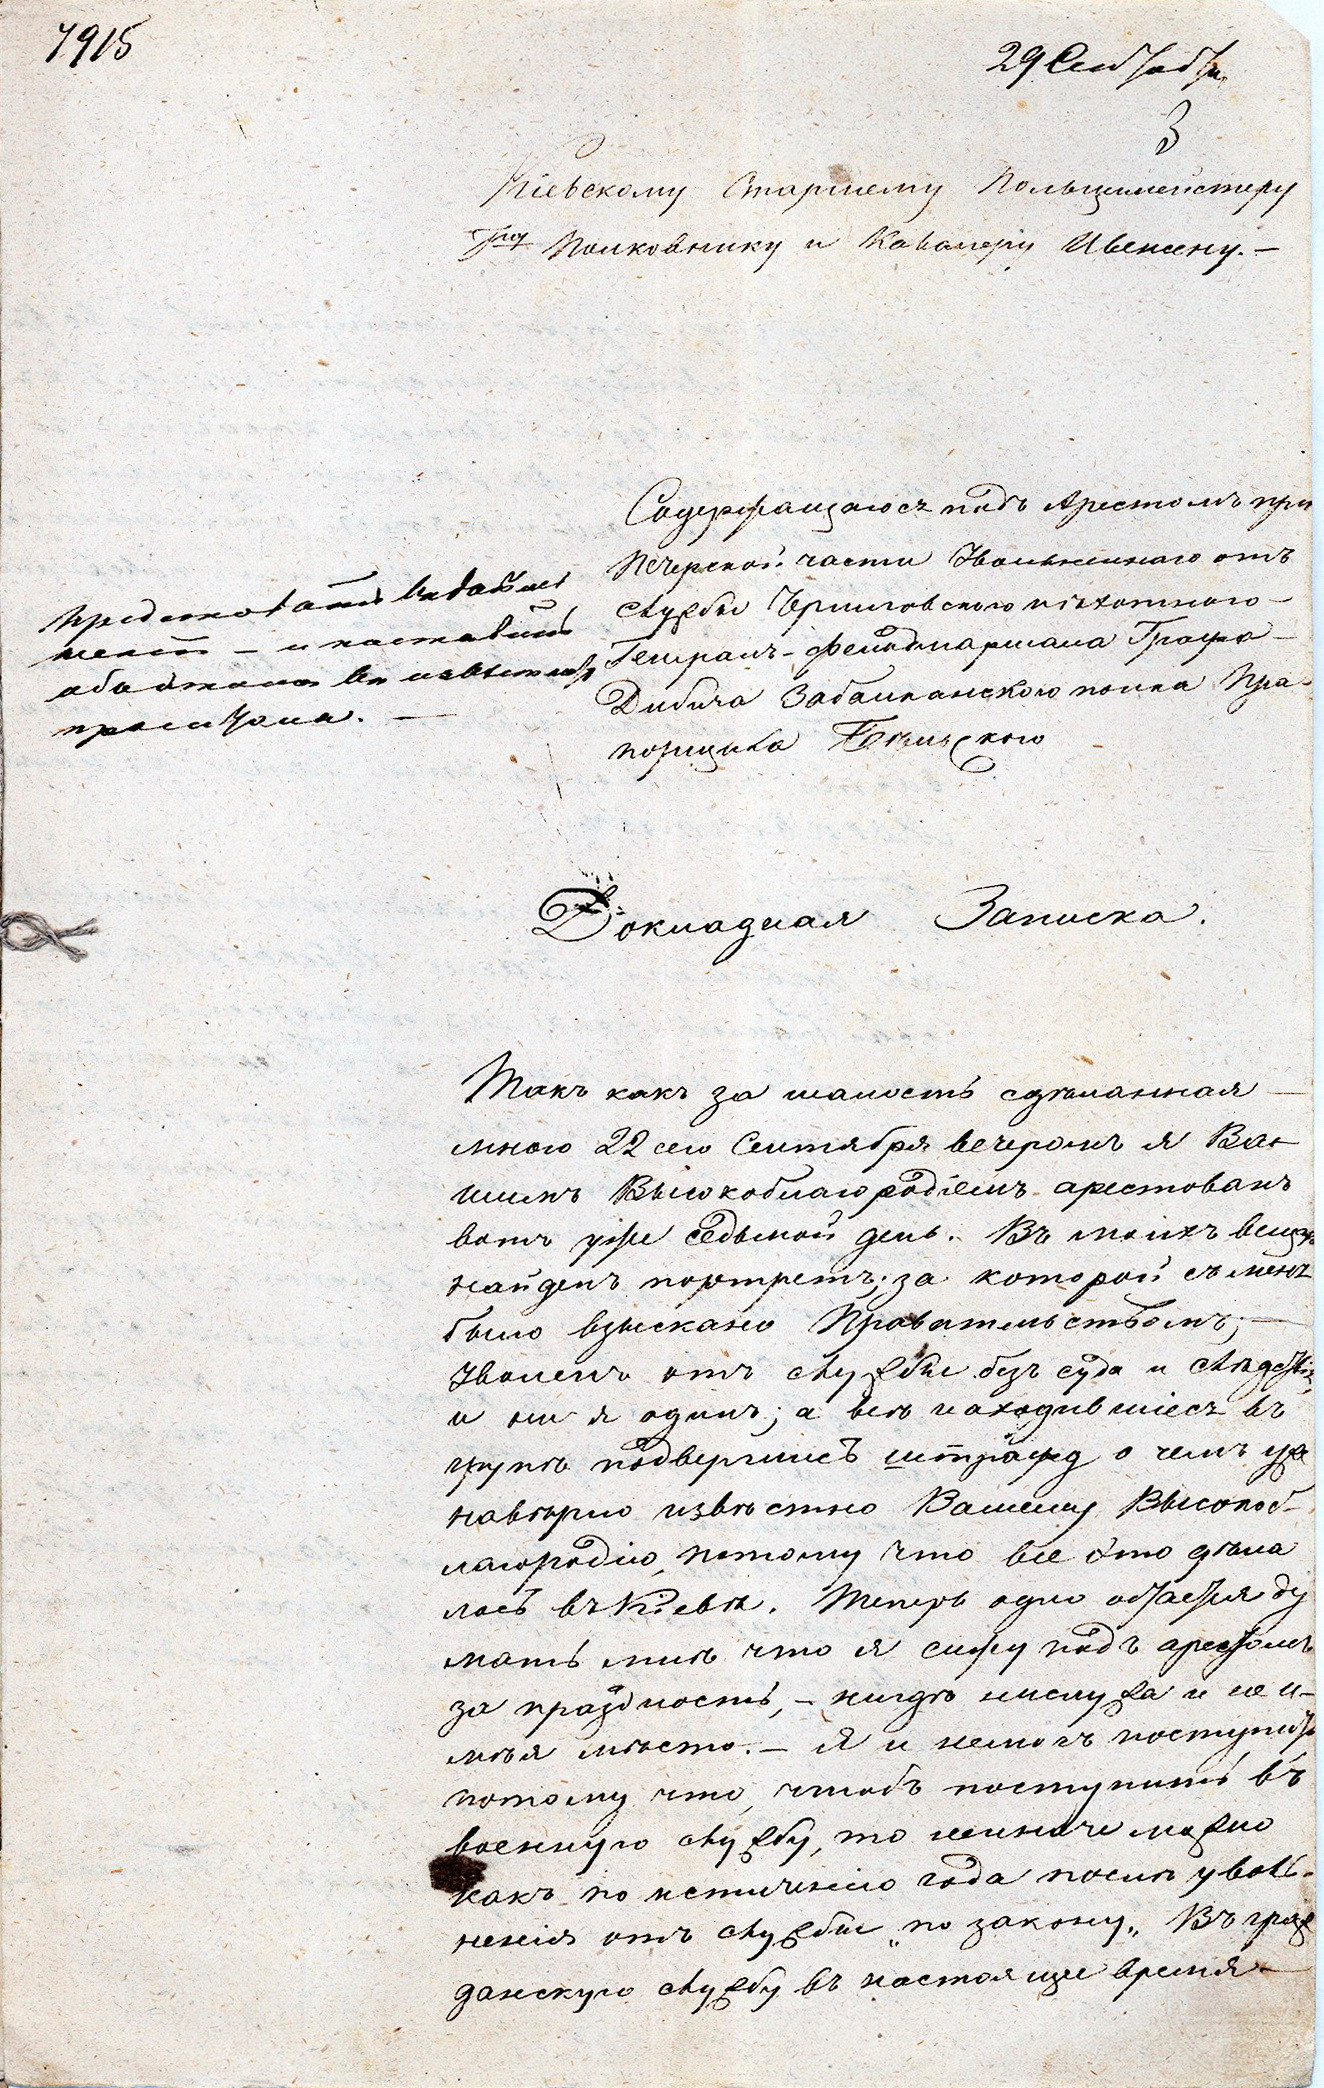 7915
29 Сентября
3
Кіевскому Старшему Польцимейстеру
Полковнику и Кавалеру Ивенсену. —
Содержащагося подъ Арестомъ при
Печерской части Уволеннаго отъ
службы Черниговского пѣхотного
Генералъ-Фельдмаршала Графа
Дибича Забалканского полка Пра-
порщика
и поставить
Докладная Записка.
Такъ какъ за шалость сдѣланная
мною 22 сего Сентября вечеромъ я Ва-
шимъ Высокоблагородіемъ арестованъ
вотъ уже седьмой день. Въ моихъ вещахъ
найденъ портретъ; за которой съ меня
было взыскано Правительствомъ; —
Уволенъ отъ службы безъ суда и слѣдствія,
и не я одинъ; а все находившіесь въ
групѣ подверглись штрафу о чемъ уже
навѣрно извѣстно Вашему Высокоб-
лагородію, потому что все это дѣла
лось въ Кіевѣ. Теперь одно остается ду
мать мнѣ что я сижу подъ арестомъ
за праздность, — нигдѣ неслужа и не и-
мѣя мѣсто. — Я и немогъ поступить
потому что, чтобъ поступить въ
военную службу, то неиначе можно
какъ по истеченію года послѣ уволь-
ненія отъ службы „по закону„ Въ граж
данскую службу въ настояще время —